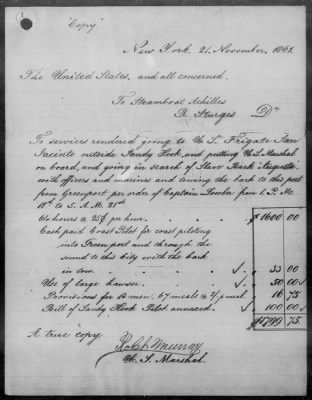 "Copy"
New York. 21. November, 1861.
The United States, and all concerned.
To Steamboat Achilles
R. Sturges Dr
To services rendered going to U. S. Frigate San
Jacinto outside Sandy Hook and putting U. S. Marshal
on board, and going in search of Slave Bark "Augusta"
with officers and marines and towing the bark to this port
from Greenport, per order of Captain from 1. P. M.
18th to 5. A. M. 21st.
64 hours @ 25$ per hour. $ 1600 00
Cash paid Coast Pilot for coast piloting
into Greenport and through the
sound to this City with the bark
in tow. ✓. 33 00
Use of large hawser. ✓. 50 00 ✓
Provisions for men, 67 meals @ 2/ meal ✓ 16 75
Bill of Sandy Hook Pilot annexed. ✓ 100 00 ✓
$1799 75.
A true copy
Robt Murray
U. S. Marshal.